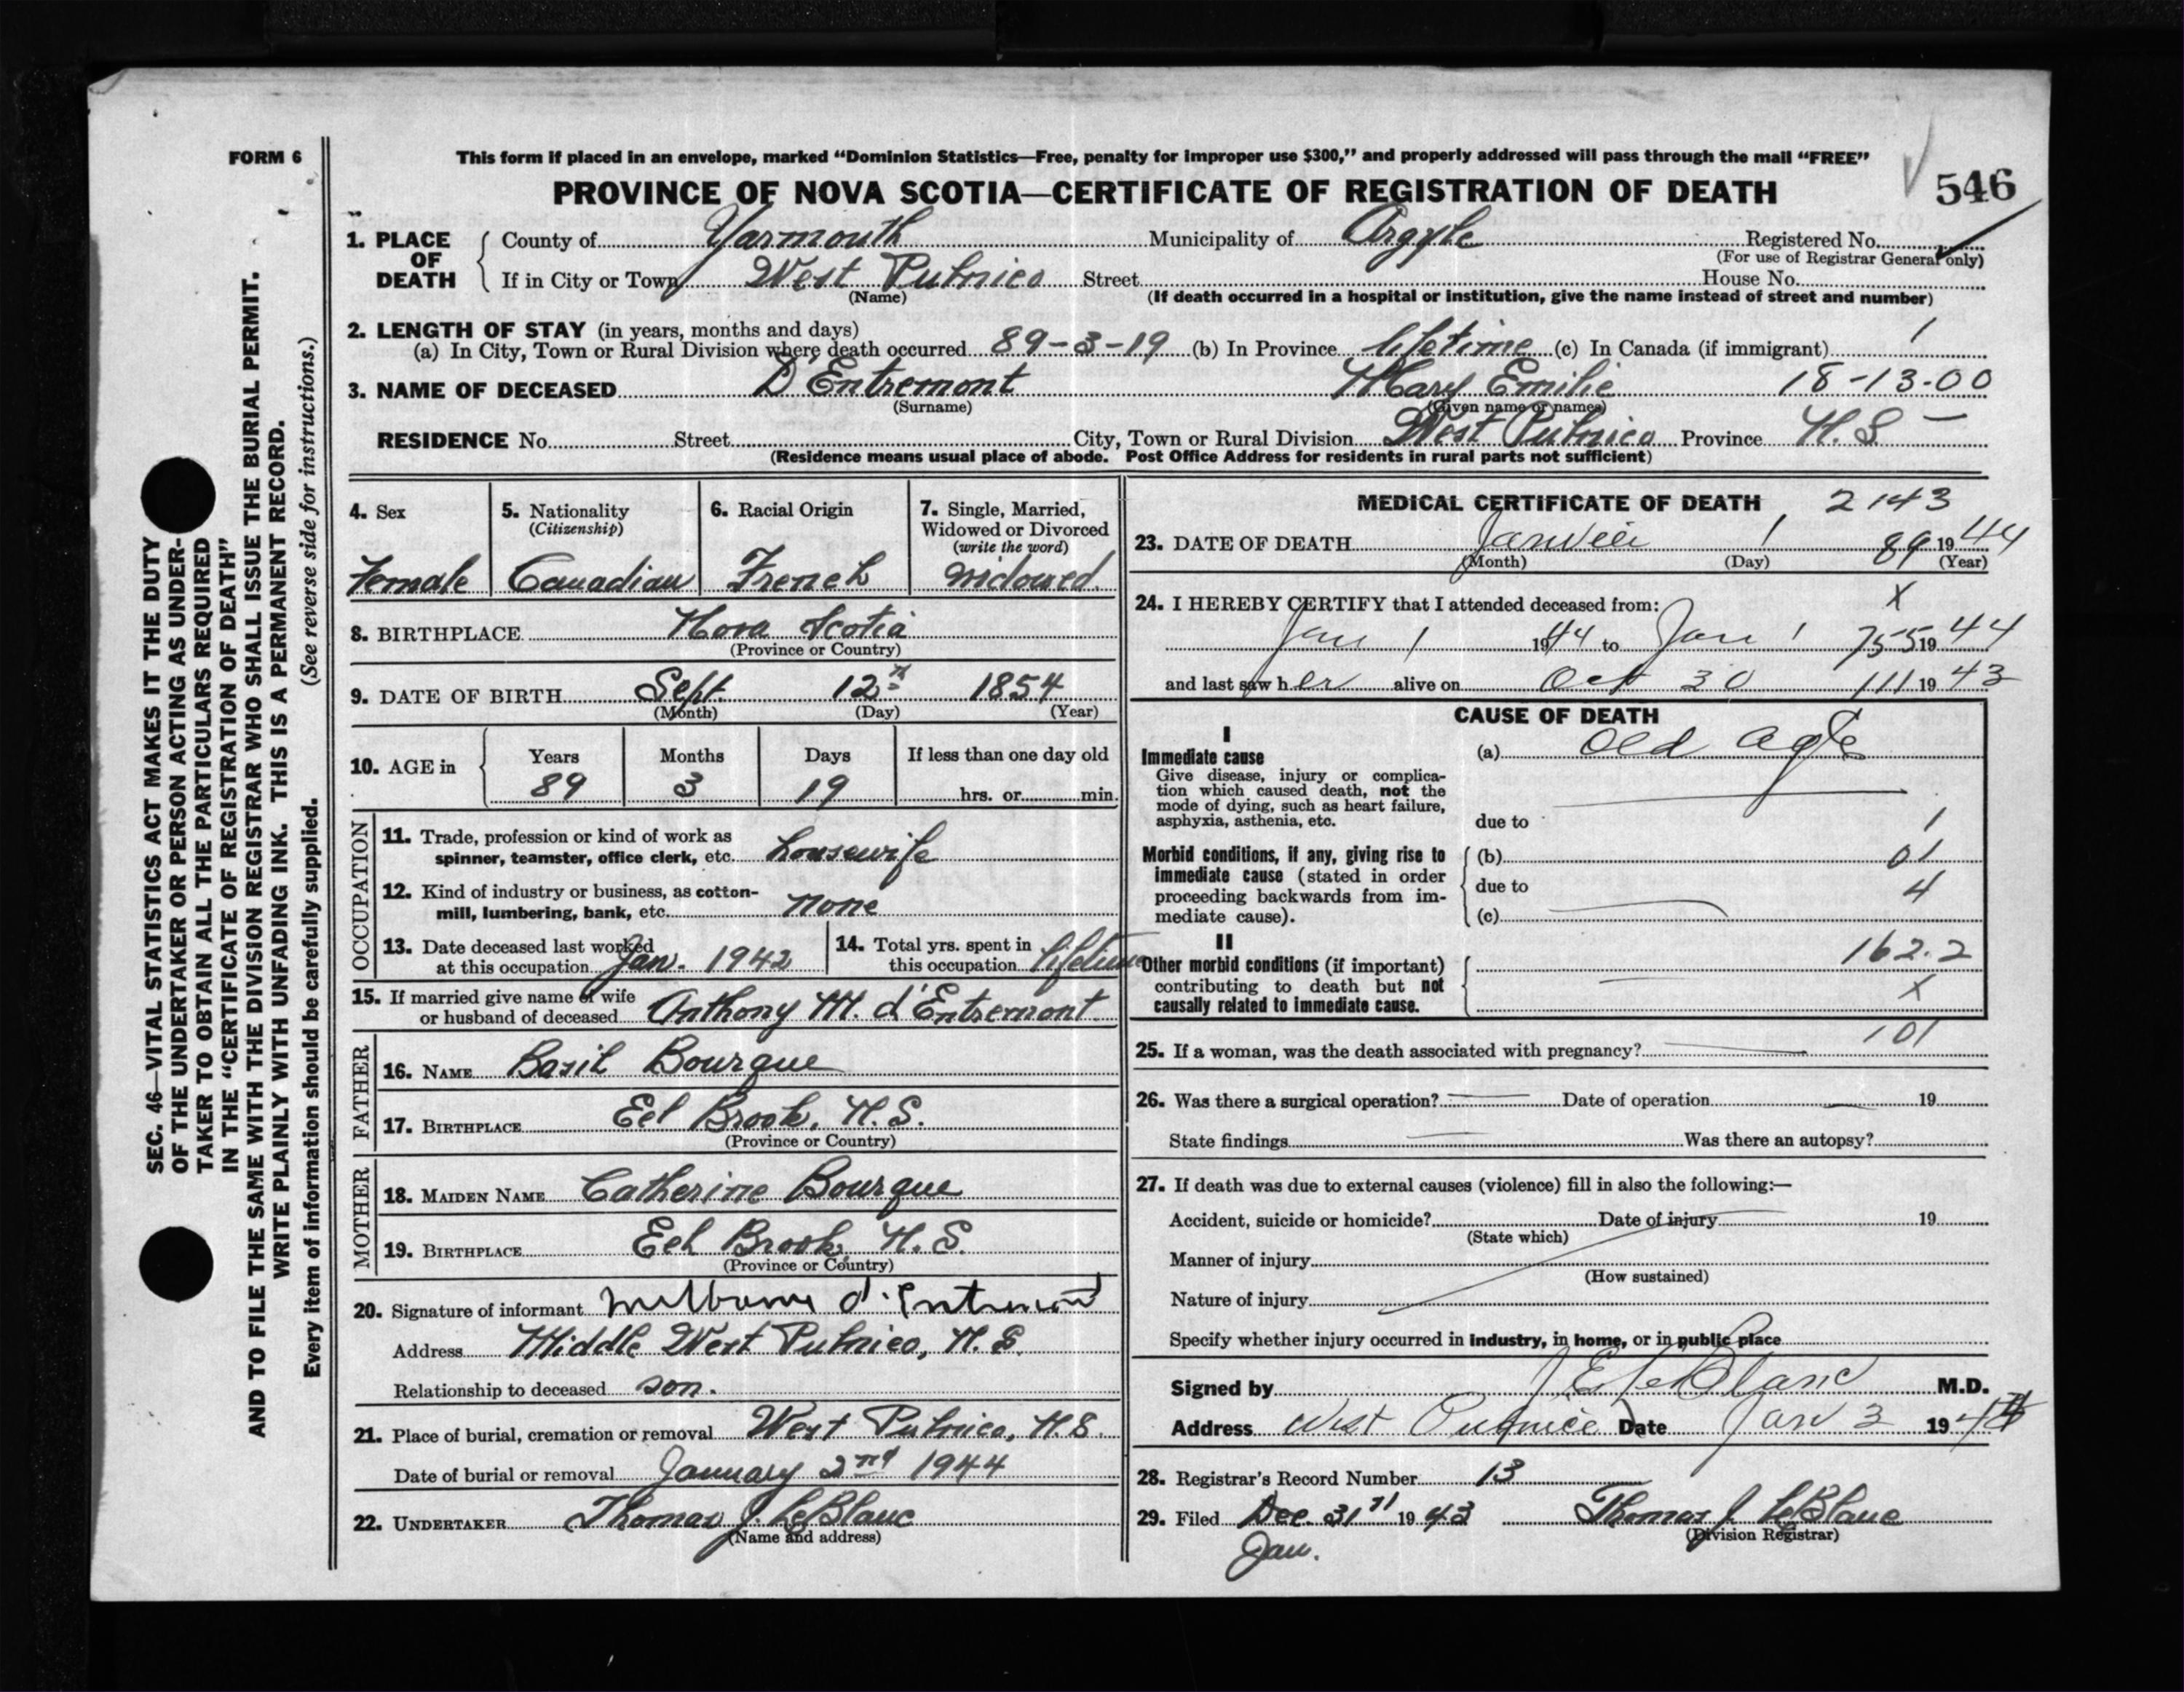 FORM 6
This form if placed in an envelope, marked "Dominion Statistics—Free, penalty for improper use $300," and properly addressed will pass through the mail "FREE"
PROVINCE OF NOVA SCOTIA—CERTIFICATE OF REGISTRATION OF DEATH
546
1. PLACE OF DEATH
County of Yarmouth Municipality of Argyle Registered No.
(For use of Registrar General only)
If in City or Town West Pubnico Street House No.
(Name) (If death occurred in a hospital or institution, give the name instead of street and number)
2. LENGTH OF STAY (in years, months and days)
(a) In City, Town or Rural Division where death occurred 89-3-19 (b) In Province lifetime (c) In Canada (if immigrant) 1
3. NAME OF DECEASED D'Entremont Mary Emilie 18-13-00
(Surname) (Given name or names)
RESIDENCE No. Street City, Town or Rural Division West Pubnico Province N.S. –
(Residence means usual place of abode. Post Office Address for residents in rural parts not sufficient)
4. Sex
Female
5. Nationality
(Citizenship)
Canadian
6. Racial Origin
French
7. Single, Married,
Widowed or Divorced
(write the word)
widowed.
8. BIRTHPLACE Nova Scotia
(Province or Country)
9. DATE OF BIRTH Sept. 12th 1854
(Month) (Day) (Year)
10. AGE in
Years Months Days If less than one day old
89 3 19 hrs. or min.
OCCUPATION
11. Trade, profession or kind of work as
spinner, teamster, office clerk, etc. housewife
12. Kind of industry or business, as cotton-
mill, lumbering, bank, etc. none
13. Date deceased last worked
at this occupation Jan. 1942
14. Total yrs. spent in
this occupation lifetime
15. If married give name of wife
or husband of deceased Anthony M. d'Entremont
FATHER
16. NAME Basil Bourque
17. BIRTHPLACE Eel Brook, N.S.
(Province or Country)
MOTHER
18. MAIDEN NAME Catherine Bourque
19. BIRTHPLACE Eel Brook, N.S.
(Province or Country)
20. Signature of informant d'Entremont
Address Middle West Pubnico, N.S.
Relationship to deceased son.
21. Place of burial, cremation or removal West Pubnico, N.S.
Date of burial or removal January 2nd 1944
22. UNDERTAKER Thomas J. LeBlanc
(Name and address)
MEDICAL CERTIFICATE OF DEATH 2143
23. DATE OF DEATH 1 89 1944
(Month) (Day) (Year)
24. I HEREBY CERTIFY that I attended deceased from: X
Jan 1 1944 to Jan 1 755 1944
and last saw her alive on Oct 30 111 1943
CAUSE OF DEATH
I
Immediate cause
Give disease, injury or complica-
tion which caused death, not the
mode of dying, such as heart failure,
asphyxia, asthenia, etc.
(a) Old age
due to 1
Morbid conditions, if any, giving rise to
immediate cause (stated in order
proceeding backwards from im-
mediate cause).
(b) 01
due to 4
(c)
II
Other morbid conditions (if important)
contributing to death but not
causally related to immediate cause.
162.2
X
101
25. If a woman, was the death associated with pregnancy?
26. Was there a surgical operation? Date of operation 19
State findings Was there an autopsy?
27. If death was due to external causes (violence) fill in also the following:—
Accident, suicide or homicide? Date of injury 19
(State which)
Manner of injury
(How sustained)
Nature of injury
Specify whether injury occurred in industry, in home, or in public place
Signed by J E LeBlanc M.D.
Address West Pubnico Date Jan 3 1944
28. Registrar's Record Number 13
29. Filed Dec. 31st 1943 Thomas J. LeBlanc
Jan. (Division Registrar)
SEC. 46—VITAL STATISTICS ACT MAKES IT THE DUTY
OF THE UNDERTAKER OR PERSON ACTING AS UNDER-
TAKER TO OBTAIN ALL THE PARTICULARS REQUIRED
IN THE "CERTIFICATE OF REGISTRATION OF DEATH"
AND TO FILE THE SAME WITH THE DIVISION REGISTRAR WHO SHALL ISSUE THE BURIAL PERMIT.
WRITE PLAINLY WITH UNFADING INK. THIS IS A PERMANENT RECORD.
Every item of information should be carefully supplied. (See reverse side for instructions.)